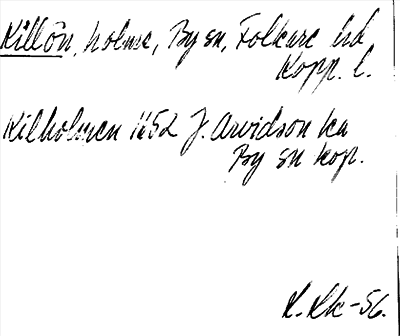 Killön, holme, By sn, Folkare hd
Kopp. l.
Kilholmen 1652 J. Arvidson ka
By sn kop.